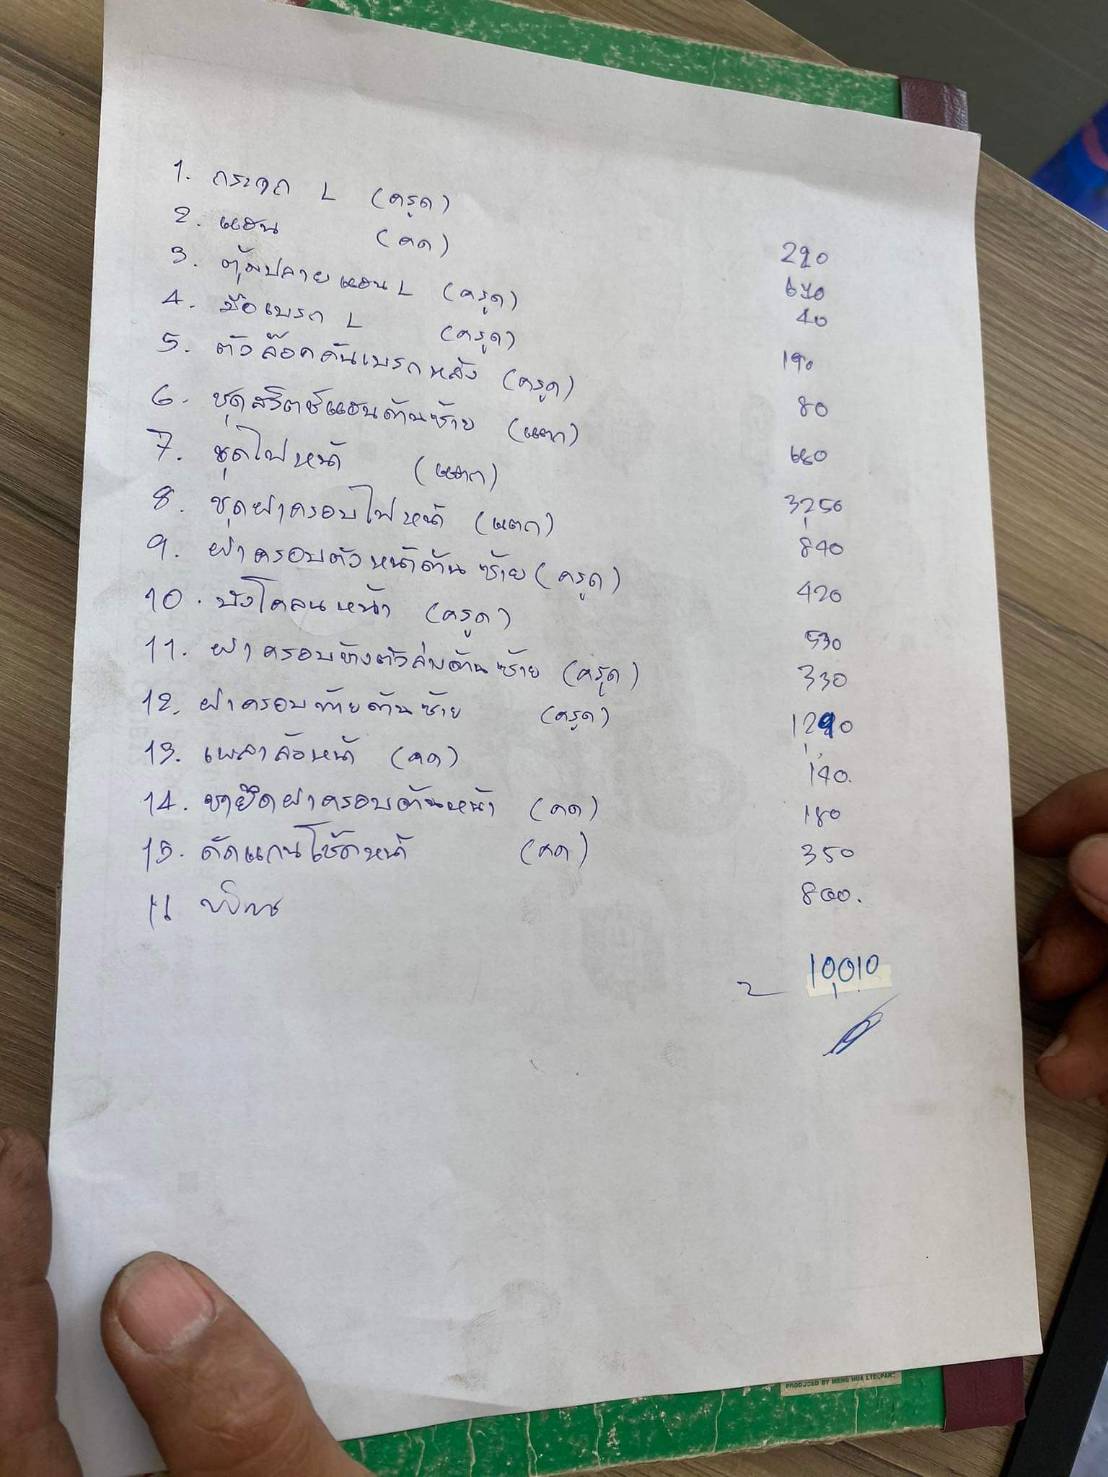 1. กระจก L (ครูด) 290
2. แฮน (คด) 670
3. ตุ้มปลายแฮน L (ครูด) 40
4. มือเบรก L (ครูด) 190
5. ตัวล๊อคคันเบรกหลัง (ครูด) 80
6. ชุดสวิตช์แฮนด้านซ้าย (แตก) 680
7. ชุดไฟหน้า (แตก) 3,250
8. ชุดฝาครอบไฟหน้า (แตก) 840
9. ฝาครอบตัวหน้าด้านซ้าย (ครูด) 420
10. บังโคลนหน้า (ครูด) 530
11. ฝาครอบข้างตัวล่างด้านซ้าย (ครูด) 330
12. ฝาครอบท้ายด้านซ้าย (ครูด) 1,290
13. เพลาล้อหน้า (คด) 140.
14. ขายึดฝาครอบด้านหน้า (คด) 180
15. ดัดแกนโช้คหน้า (คด) 350
800.
10,010
PRODUCED BY